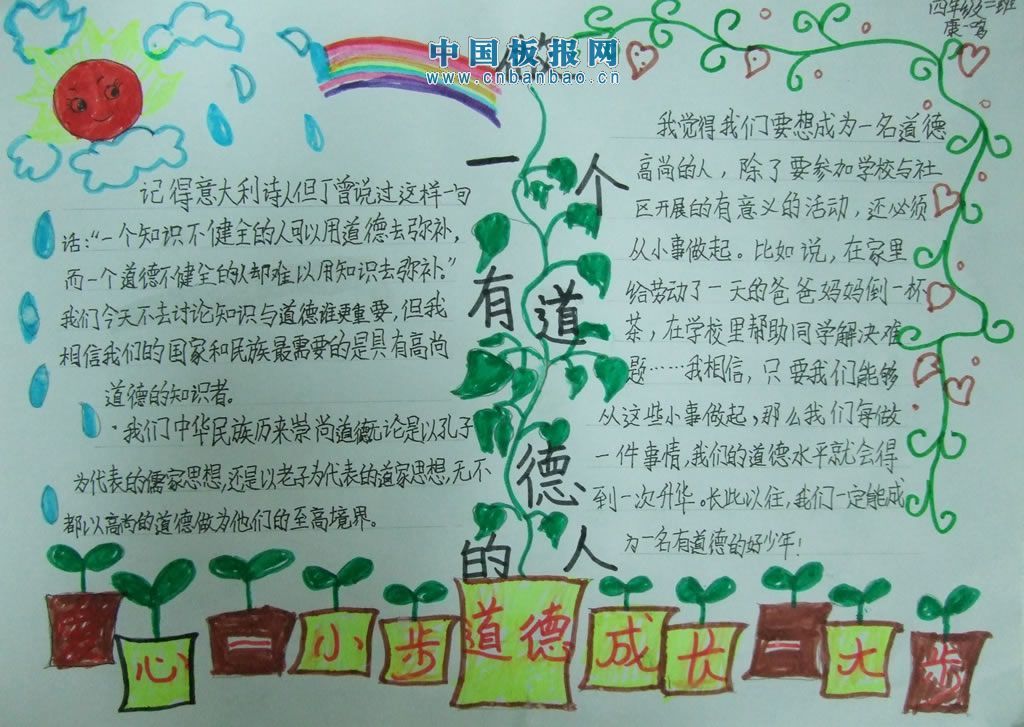 四年级
中国板报网
www.cnbanbao.cn
做一个有道德的人
记得意大利诗人但丁曾说过这样一句
话:“一个知识不健全的人可以用道德去弥补,
而一个道德不健全的人却难以用知识去弥补。”
我们今天不去讨论知识与道德谁更重要,但我
相信我们的国家和民族最需要的是具有高尚
道德的知识者。
我们中华民族历来崇尚道德无论是以孔子
为代表的儒家思想,还是以老子为代表的道家思想,无不
都以高尚的道德做为他们的至高境界。
我觉得我们要想成为一名道德
高尚的人,除了要参加学校与社
区开展的有意义的活动,还必须
从小事做起。比如说,在家里
给劳动了一天的爸爸妈妈倒一杯
茶,在学校里帮助同学解决难
题……我相信,只要我们能够
从这些小事做起,那么我们每做
一件事情,我们的道德水平就会得
到一次升华。长此以往,我们一定能成
为一名有道德的好少年!
心一小步道德成长一大步